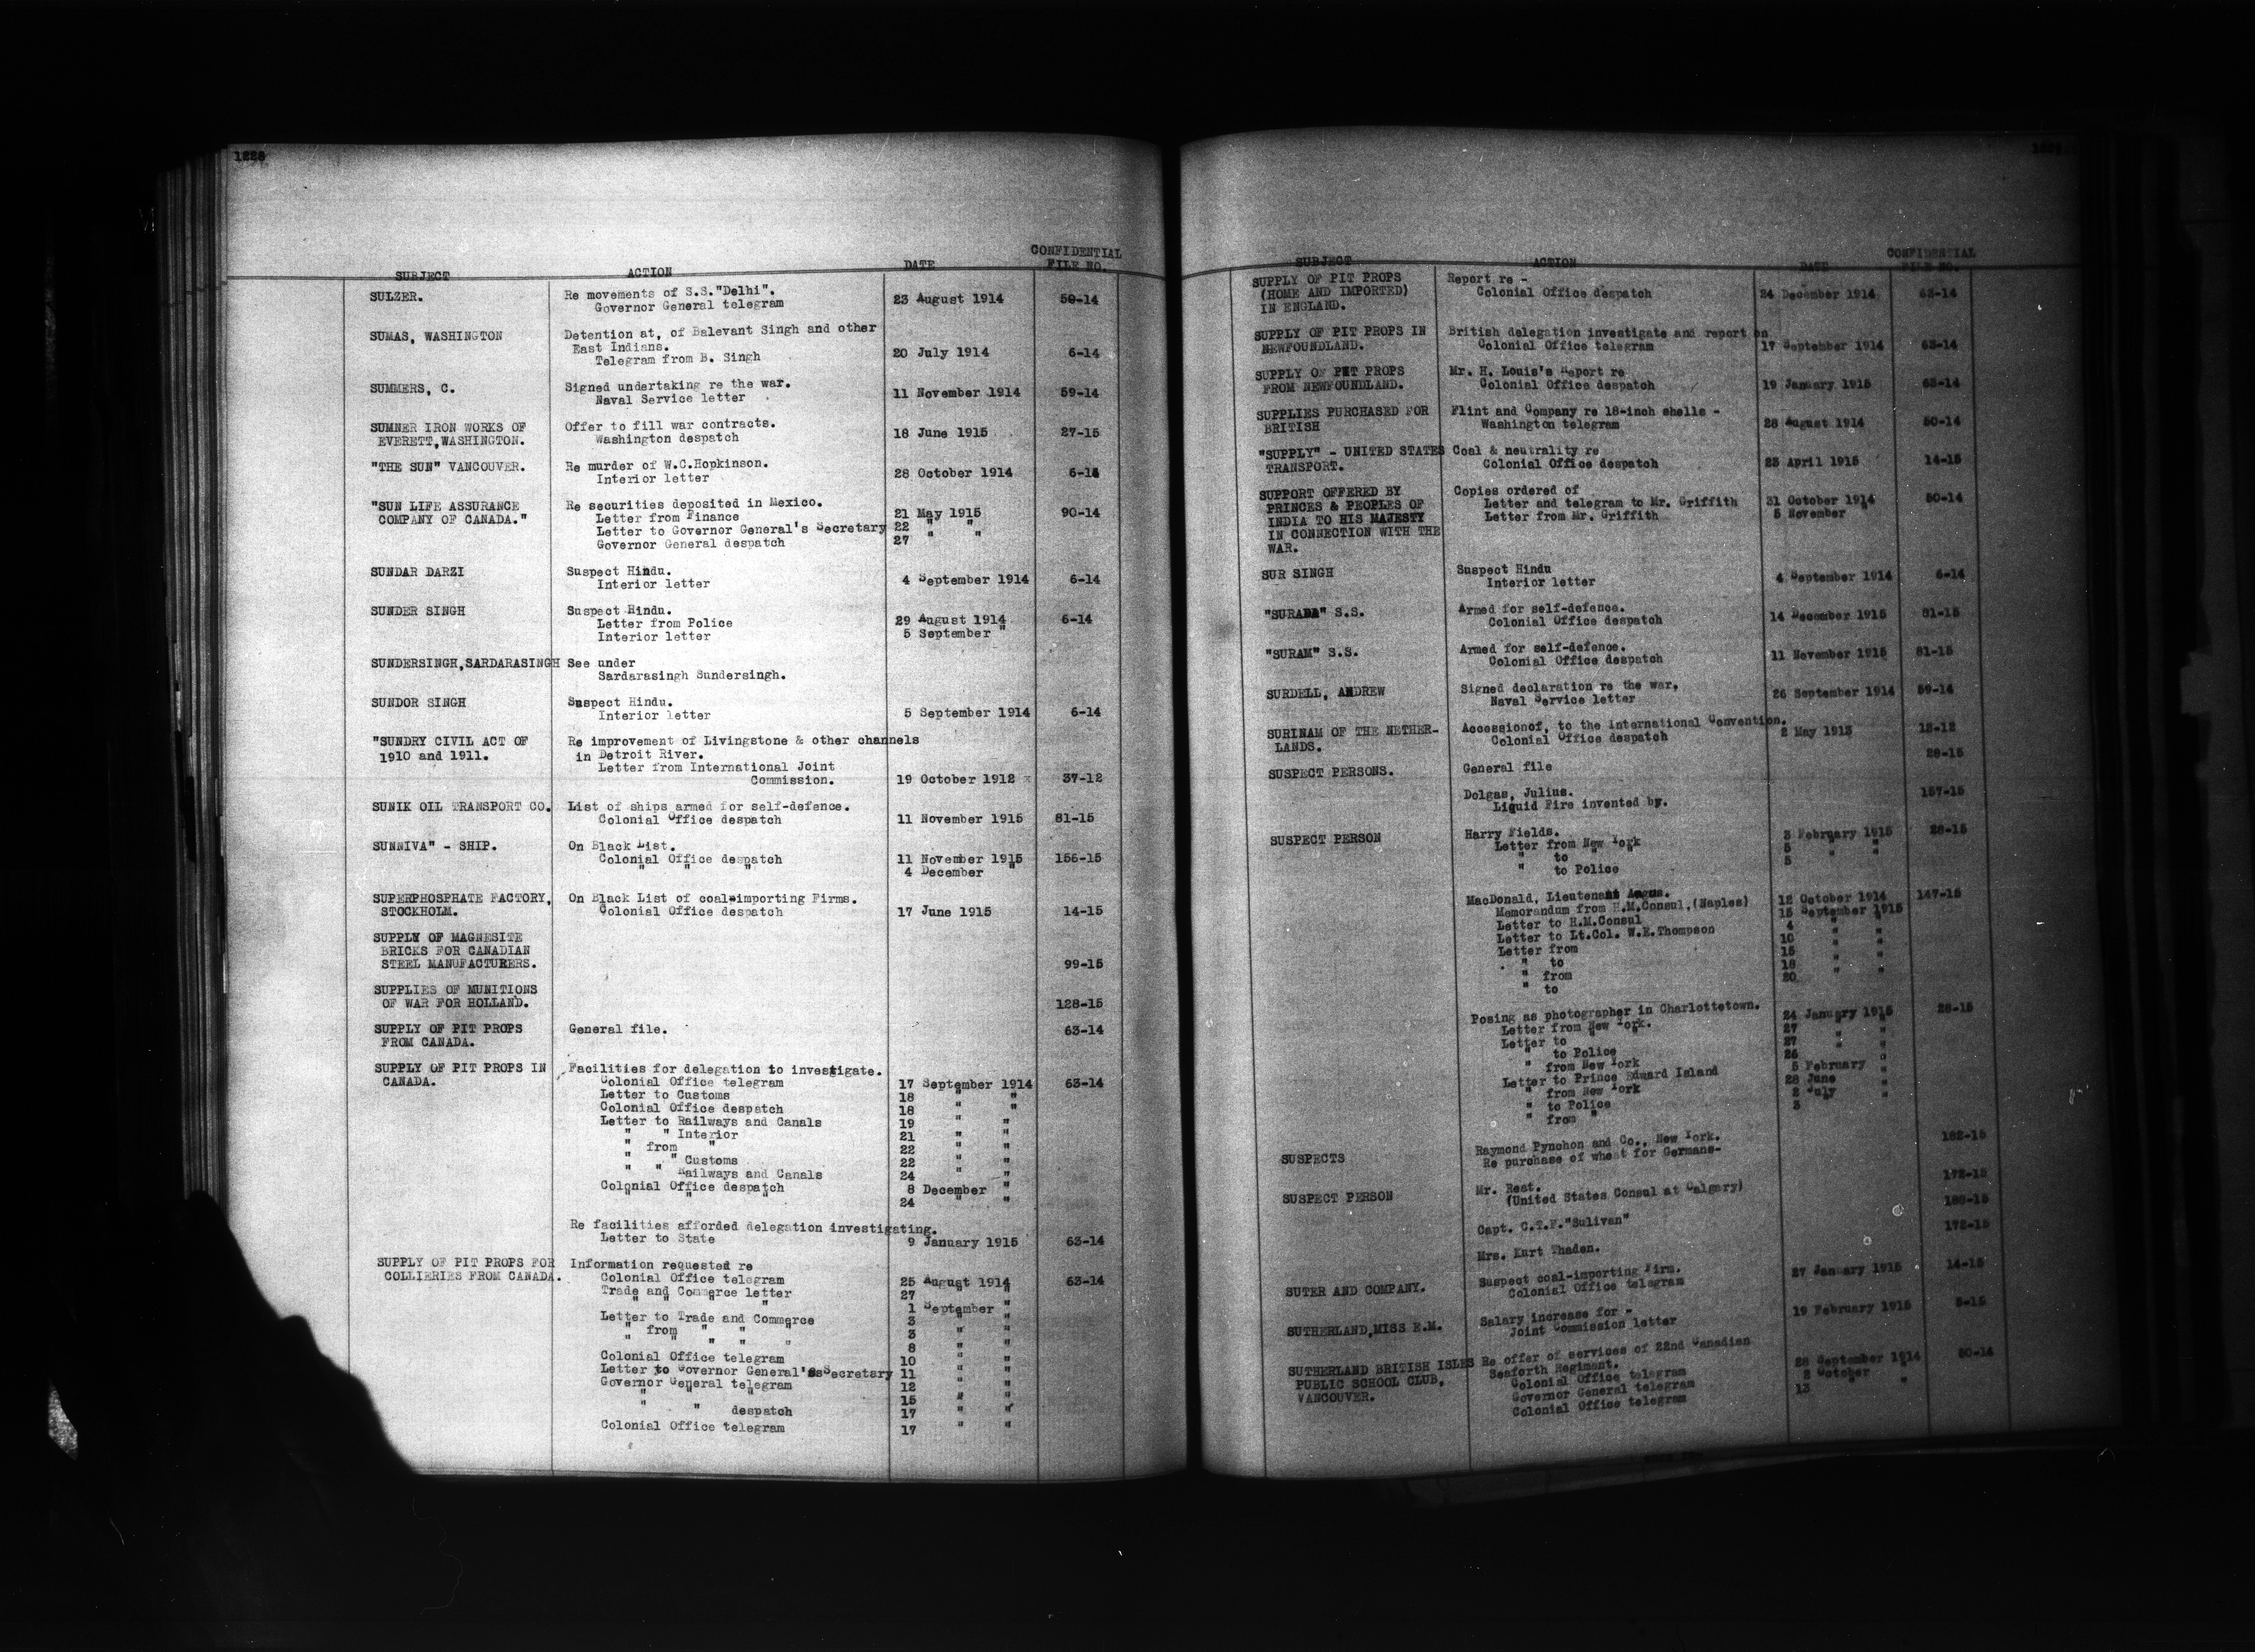 1228
SUBJECT ACTION DATE CONFIDENTIAL FILE NO.
SULZER. Re movements of S.S."Delhi".
Governor General telegram 23 August 1914 50-14
SUMAS, WASHINGTON Detention at, of Balevant Singh and other
East Indians.
Telegram from B. Singh 20 July 1914 6-14
SUMMERS, C. Signed undertaking re the war.
Naval Service letter 11 November 1914 59-14
SUMNER IRON WORKS OF Offer to fill war contracts.
EVERETT,WASHINGTON. Washington despatch 18 June 1915 27-15
"THE SUN" VANCOUVER. Re murder of W.C.Hopkinson.
Interior letter 28 October 1914 6-14
"SUN LIFE ASSURANCE Re securities deposited in Mexico.
COMPANY OF CANADA." Letter from Finance 21 May 1915 90-14
Letter to Governor General's Secretary 22 " "
Governor General despatch 27 " "
SUNDAR DARZI Suspect Hindu.
Interior letter 4 September 1914 6-14
SUNDER SINGH Suspect Hindu.
Letter from Police 29 August 1914 6-14
Interior letter 5 September "
SUNDERSINGH,SARDARASINGH See under
Sardarasingh Sundersingh.
SUNDOR SINGH Suspect Hindu.
Interior letter 5 September 1914 6-14
"SUNDRY CIVIL ACT OF Re improvement of Livingstone & other channels
1910 and 1911. in Detroit River.
Letter from International Joint
Commission. 19 October 1912 37-12
SUNIK OIL TRANSPORT CO. List of ships armed for self-defence.
Colonial Office despatch 11 November 1915 81-15
SUNNIVA" - SHIP. On Black List.
Colonial Office despatch 11 November 1915 156-15
" " " 4 December "
SUPERPHOSPHATE FACTORY, On Black List of coal-importing Firms.
STOCKHOLM. Colonial Office despatch 17 June 1915 14-15
SUPPLY OF MAGNESITE
BRICKS FOR CANADIAN
STEEL MANUFACTURERS. 99-15
SUPPLIES OF MUNITIONS
OF WAR FOR HOLLAND. 128-15
SUPPLY OF PIT PROPS General file. 63-14
FROM CANADA.
SUPPLY OF PIT PROPS IN Facilities for delegation to investigate.
CANADA. Colonial Office telegram 17 September 1914 63-14
Letter to Customs 18 " "
Colonial Office despatch 18 " "
Letter to Railways and Canals 19 " "
" " Interior 21 " "
" from " 22 " "
" " Customs 22 " "
" " Railways and Canals 24 " "
Colonial Office despatch 8 December "
" " " 24 " "
Re facilities afforded delegation investigating.
Letter to State 9 January 1915 63-14
SUPPLY OF PIT PROPS FOR Information requested re
COLLIERIES FROM CANADA. Colonial Office telegram 25 August 1914 63-14
Trade and Commerce letter 27 " "
" " " " 1 September "
Letter to Trade and Commerce 3 " "
" from " " " 3 " "
" " " " " 8 " "
Colonial Office telegram 10 " "
Letter to Governor General's Secretary 11 " "
Governor General telegram 12 " "
" " " 15 " "
" " despatch 17 " "
Colonial Office telegram 17 " "
SUBJECT ACTION DATE CONFIDENTIAL FILE NO.
SUPPLY OF PIT PROPS Report re -
(HOME AND IMPORTED) Colonial Office despatch 24 December 1914 63-14
IN ENGLAND.
SUPPLY OF PIT PROPS IN British delegation investigate and report on
NEWFOUNDLAND. Colonial Office telegram 17 September 1914 63-14
SUPPLY OF PIT PROPS Mr. H. Louis's Report re
FROM NEWFOUNDLAND. Colonial Office despatch 19 January 1915 63-14
SUPPLIES PURCHASED FOR Flint and Company re 18-inch shells -
BRITISH Washington telegram 28 August 1914 50-14
"SUPPLY" - UNITED STATES Coal & neutrality re
TRANSPORT. Colonial Office despatch 23 April 1915 14-15
SUPPORT OFFERED BY Copies ordered of
PRINCES & PEOPLES OF Letter and telegram to Mr. Griffith 31 October 1914 50-14
INDIA TO HIS MAJESTY Letter from Mr. Griffith 5 November "
IN CONNECTION WITH THE
WAR.
SUR SINGH Suspect Hindu
Interior letter 4 September 1914 6-14
"SURADA" S.S. Armed for self-defence.
Colonial Office despatch 14 December 1915 81-15
"SURAM" S.S. Armed for self-defence.
Colonial Office despatch 11 November 1915 81-15
SURDELL, ANDREW Signed declaration re the war,
Naval Service letter 26 September 1914 59-14
SURINAM OF THE NETHER- Accessionof, to the International Convention.
LANDS. Colonial Office despatch 2 May 1913 13-12
SUSPECT PERSONS. General file 28-15
Dolgas, Julius.
Liquid Fire invented by. 157-15
SUSPECT PERSON Harry Fields.
Letter from New York 3 February 1915 28-15
" to " 5 " "
" to Police 5
MacDonald, Lieutenant Angus.
Memorandum from H.M.Consul,(Naples) 12 October 1914 147-15
Letter to H.M.Consul 15 September 1915
Letter to Lt.Col. W.E.Thompson 4 " "
Letter from 10 " "
" to 15 " "
" from 18 " "
" to 20
Posing as photographer in Charlottetown.
Letter from New York. 24 January 1915 28-15
Letter to " " 27 " "
" to Police 27 " "
" from New York 26 "
Letter to Prince Edward Island 5 February "
" from New York 28 June "
" to Police 2 July "
" from " 3
SUSPECTS Raymond Pynchon and Co., New York. 182-15
Re purchase of wheat for Germans-
SUSPECT PERSON Mr. Reat. 172-15
(United States Consul at Calgary)
Capt. C.T.F."Sulivan"
Mrs. Kurt Thaden. 172-15
SUTER AND COMPANY. Suspect coal-importing Firm.
Colonial Office telegram 27 January 1915 14-15
SUTHERLAND,MISS E.M. Salary increase for -
Joint Commission letter 19 February 1915 5-15
SUTHERLAND BRITISH ISLES Re offer of services of 22nd Canadian
PUBLIC SCHOOL CLUB, Seaforth Regiment.
VANCOUVER. Colonial Office telegram 28 September 1914 50-14
Governor General telegram 2 October "
Colonial Office telegram 13 " "